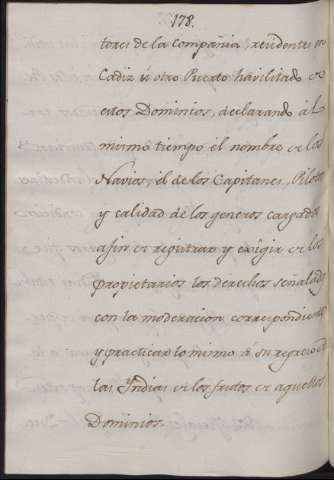 178.
tores de la compañia, recidentes en
Cadiz ú otro Puerto havilitado de
estos Dominios, declarando ál
mismo tiempo el nombre de los
Navios, el de los Capitanes, Pilotos
y calidad de los generos cargados
afin de registrar y exîgir de los
propietarios los derechos señalados
con la moderacion correspondiente
y practicar lo mismo á su regreso de
las Yndias de los frutos de aquellos
Dominios.